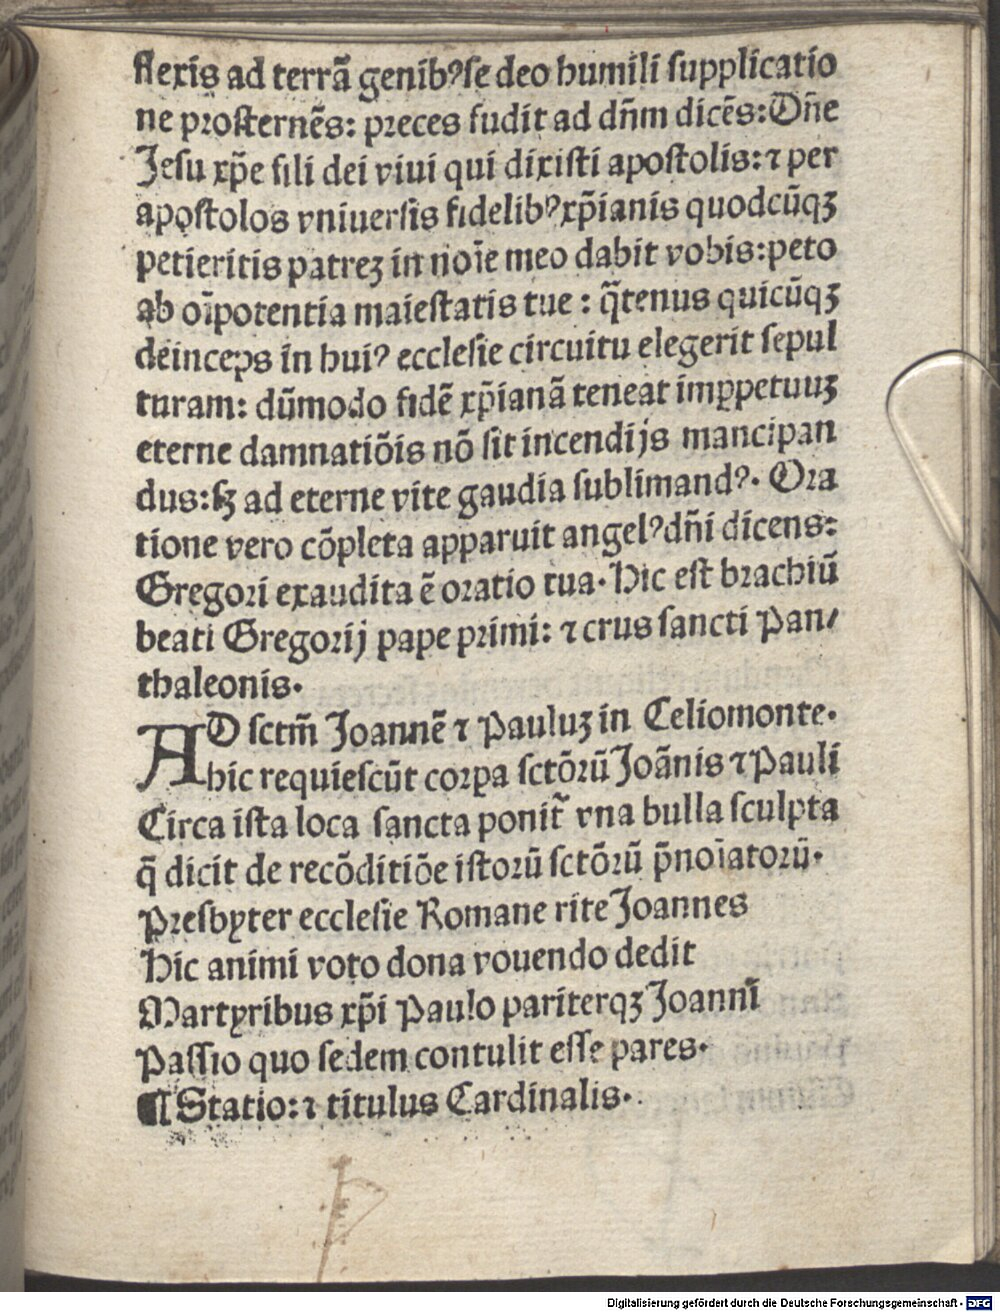 flexis ad terrã genibꝰ se deo humili supplicatio
ne prosternẽs: preces fudit ad dñm dicẽs: Dñe
Jesu xp̃e fili dei viui qui dixisti apostolis: ⁊ per
apostolos vniuersis fidelibꝰ xp̃ianis quodcũqꝫ
petieritis patreꝫ in noĩe meo dabit vobis: peto
ab oĩpotentia maiestatis tue: q̃tenus quicũqꝫ
deinceps in huiꝰ ecclesie circuitu elegerit sepul
turam: dũmodo fidẽ xp̃ianã teneat imꝑpetuuꝫ
eterne damnatiõis nõ sit incendijs mancipan
dus: sꝫ ad eterne vite gaudia sublimandꝰ. Ora
tione vero cõpleta apparuit angelꝰ dñi dicens:
Gregori exaudita ẽ oratio tua. Hic est brachiũ
beati Gregorij pape primi: ⁊ crus sancti Pan/
thaleonis.
AD sctm̃ Joannẽ ⁊ Pauluꝫ in Celiomonte.
hic requiescũt corpa sctõrũ Joãnis ⁊ Pauli
Circa ista loca sancta ponit̃ vna bulla sculpta
q̃ dicit de recõditiõe istorũ sctõrũ p̃noĩatorũ.
Presbyter ecclesie Romane rite Joannes
Hic animi voto dona vouendo dedit
Martyribus xp̃i Paulo pariterqꝫ Joannĩ
Passio quo sedem contulit esse pares.
¶ Statio: ⁊ titulus Cardinalis.
Digitalisierung gefördert durch die Deutsche Forschungsgemeinschaft - DFG